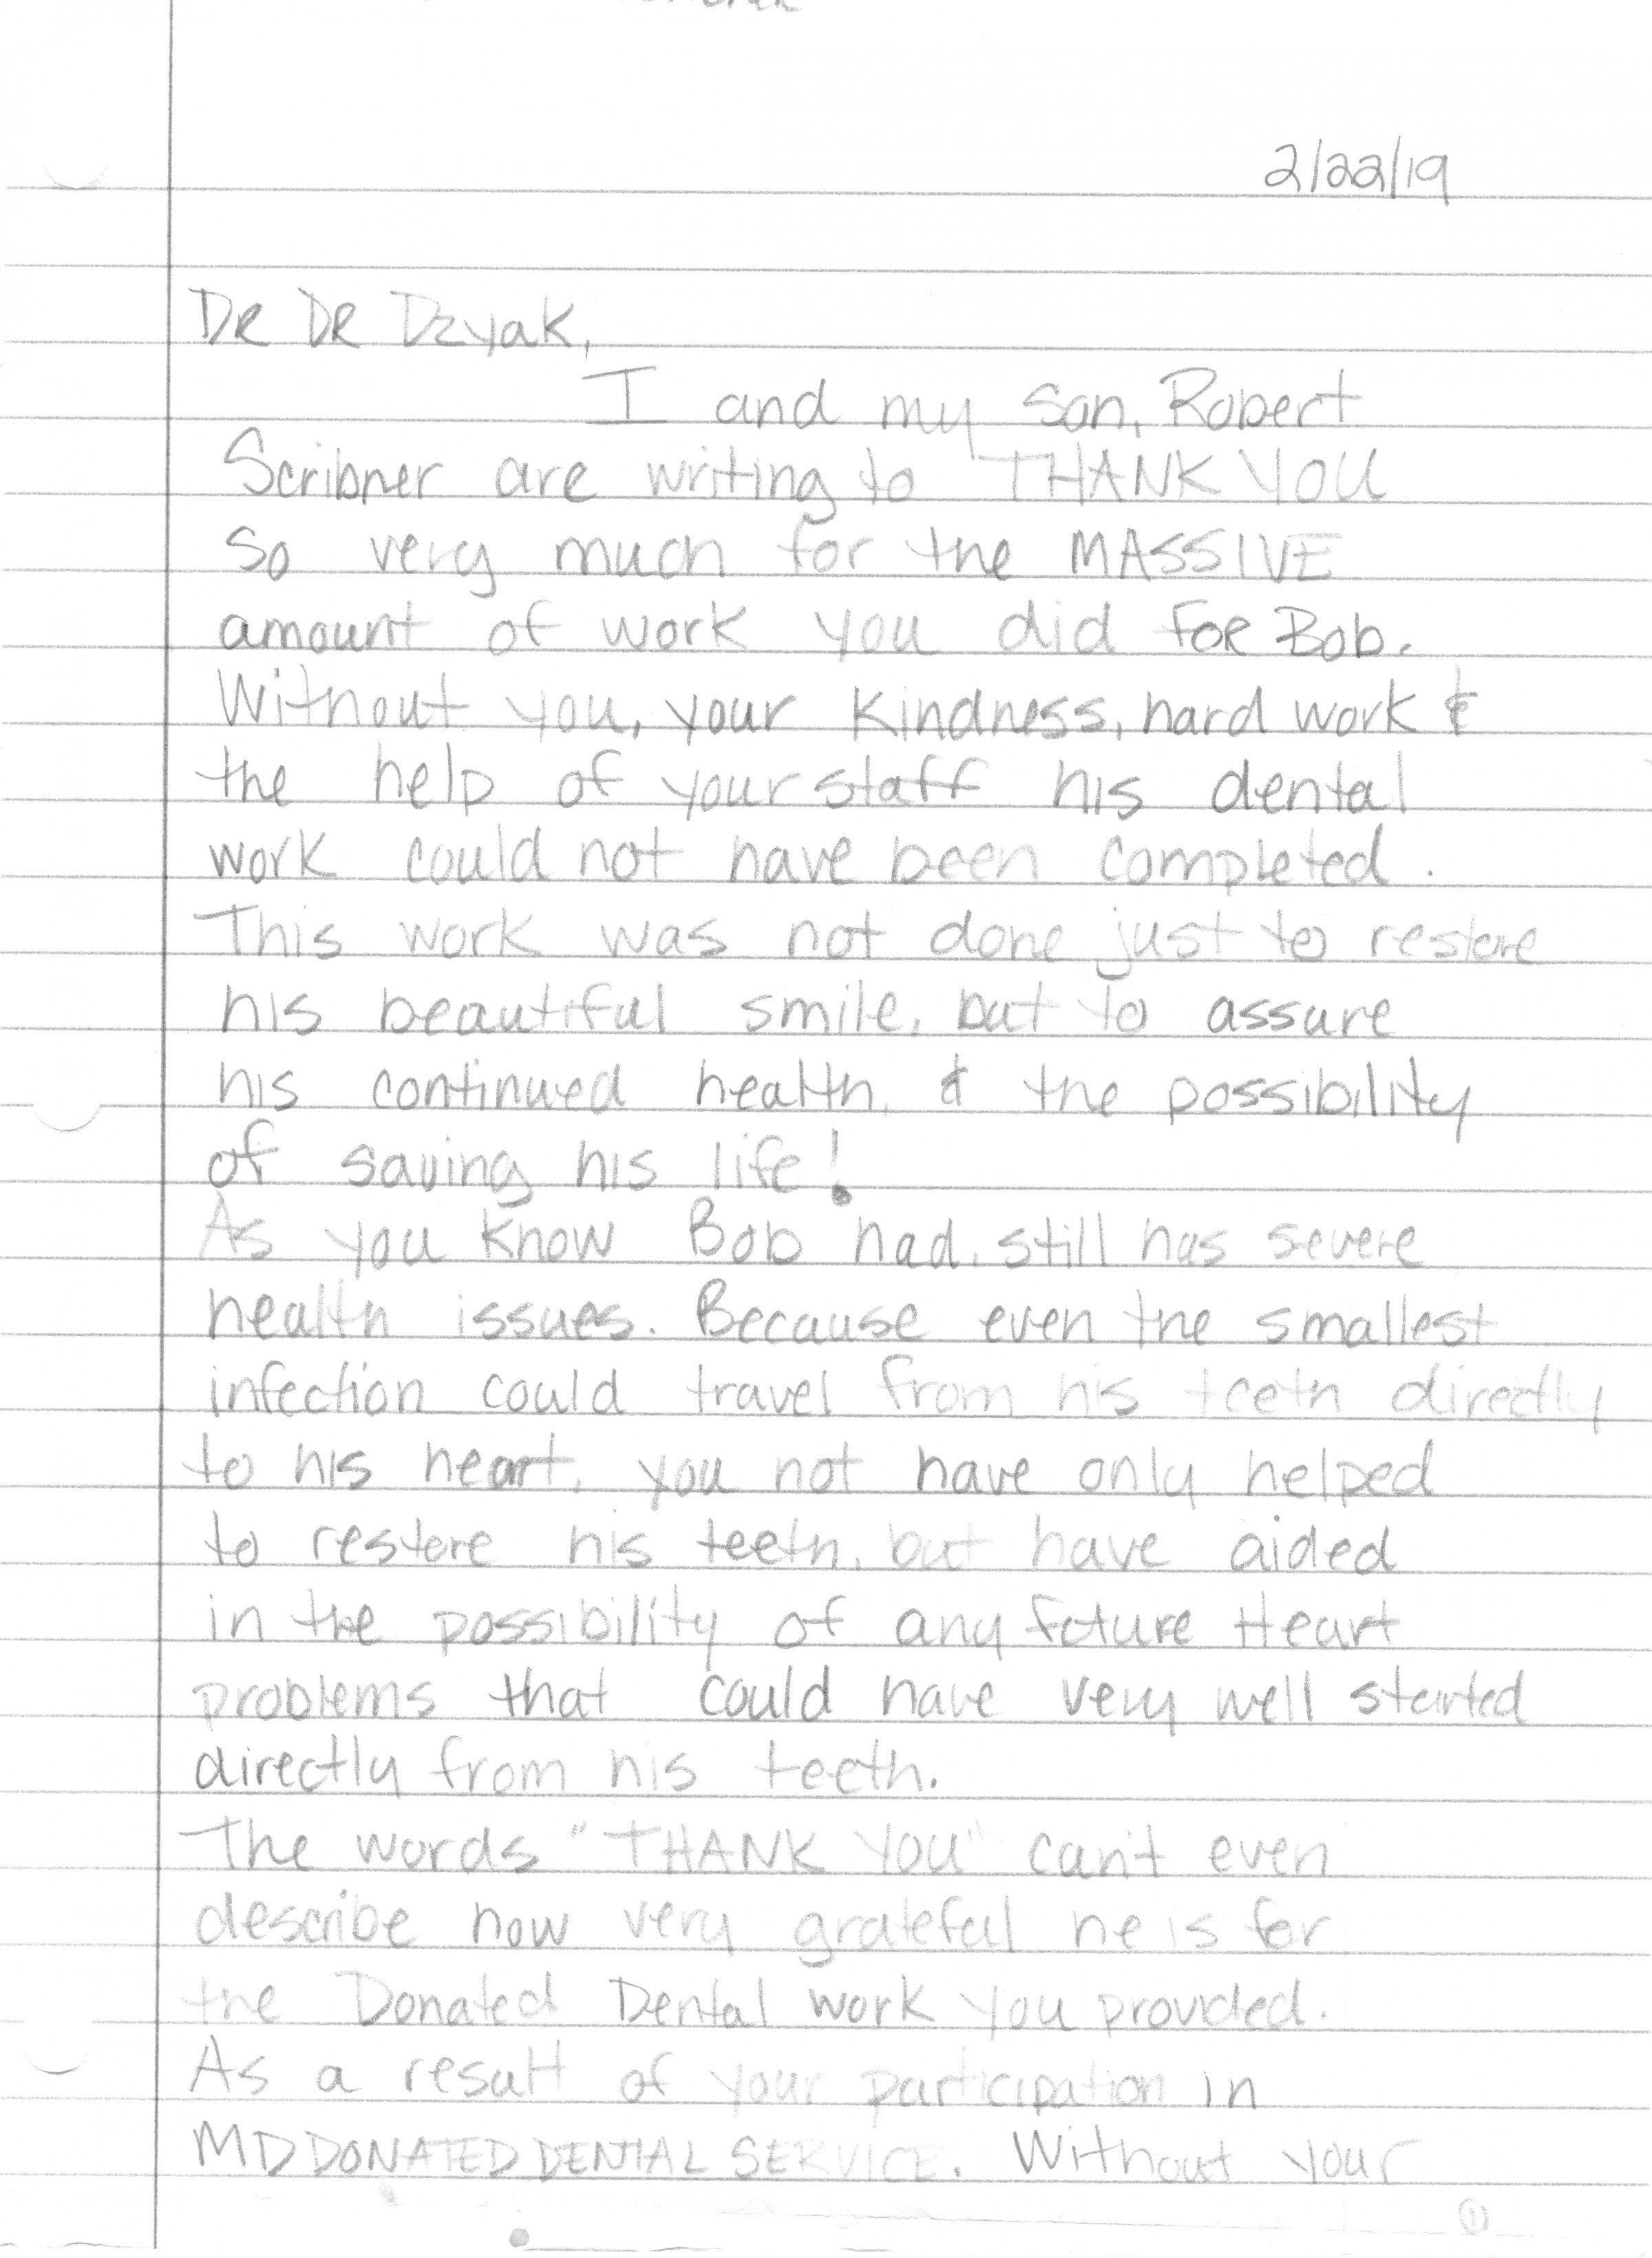 2/22/19
DR DR Dzyak,
I and my son, Robert
Scribner are writing to THANK YOU
so very much for the MASSIVE
amount of work you did FOR Bob.
Without you, your kindness, hard work &
the help of your staff his dental
work could not have been completed.
This work was not done just to restore
his beautiful smile, but to assure
his continued health, & the possibility
of saving his life!
As you know Bob had, still has severe
health issues. Because even the smallest
infection could travel from his teeth directly
to his heart, you not have only helped
to restore his teeth, but have aided
in the possibility of any future Heart
problems that could have very well started
directly from his teeth.
The words "THANK YOU" can't even
describe how very grateful he is for
the Donated Dental work you provided.
As a result of your participation in
MD DONATED DENTAL SERVICE. Without your
1